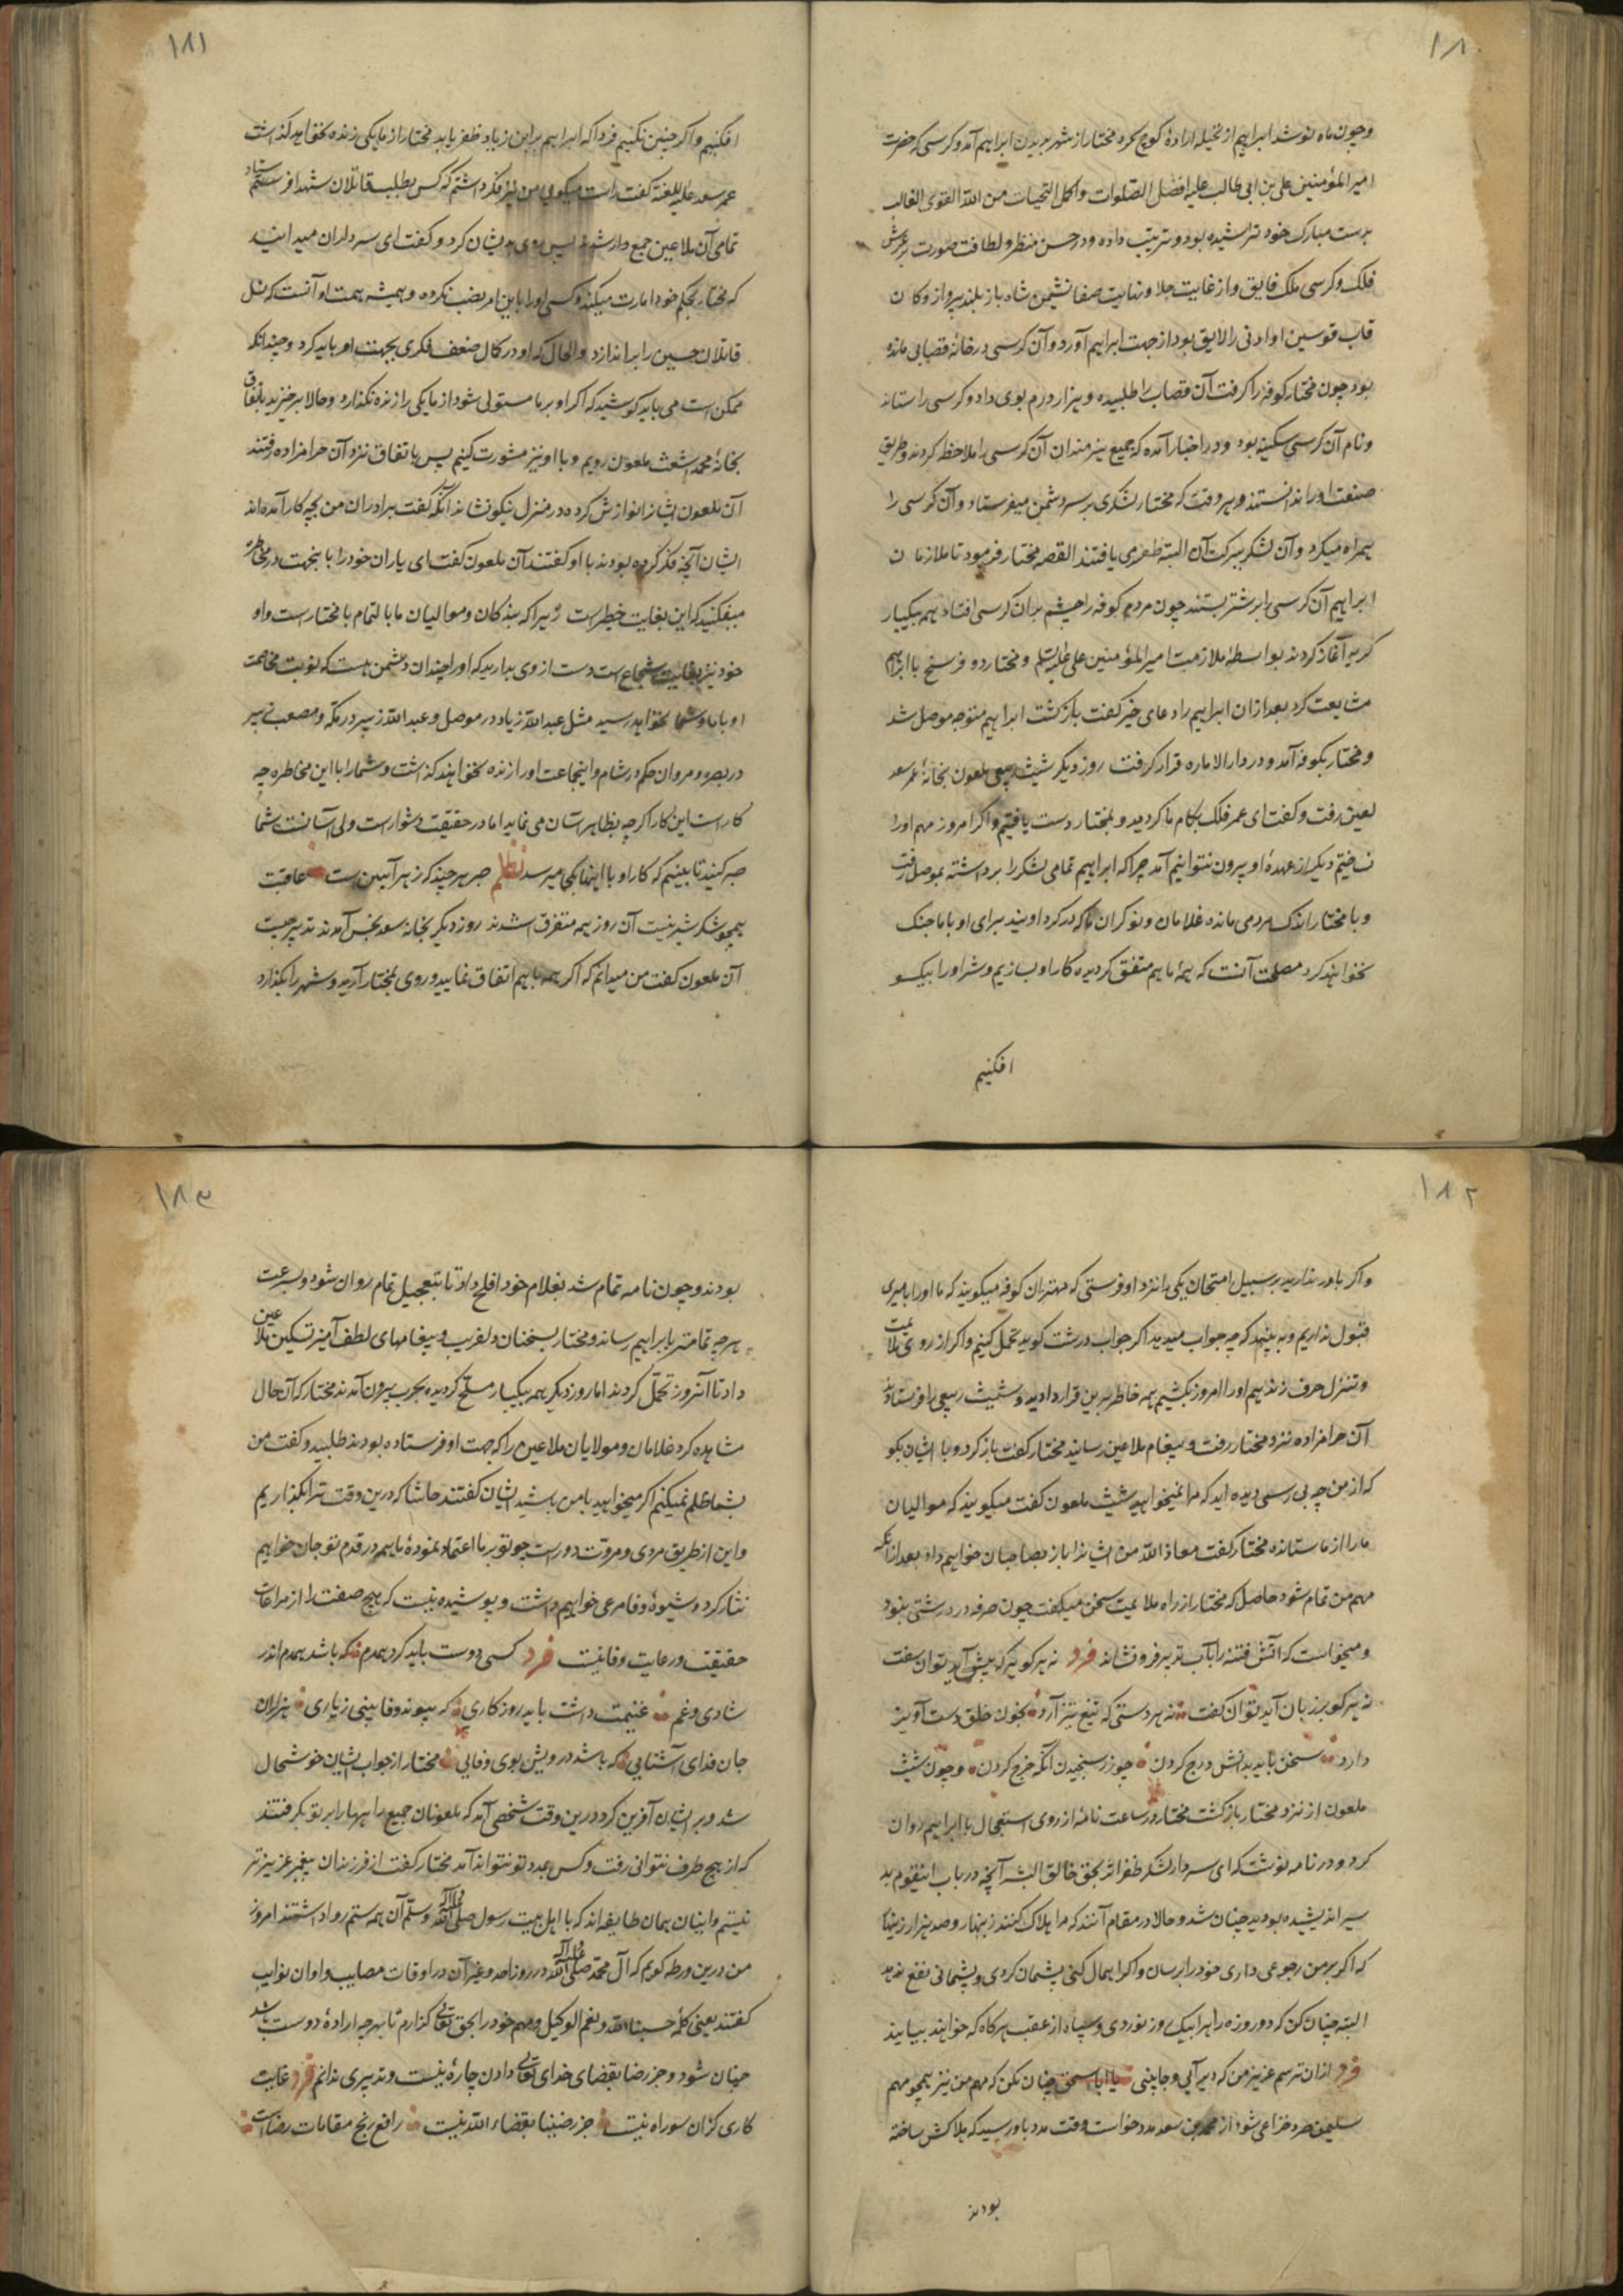 ۱۸۰
وچون ماه نو شد ابراهیم از نخیله اراده کوچ کرد مختار از شهر بدیدن ابراهیم آمد و کرسی که حضرت
امیر المؤمنین علی بن ابی طالب علیه افضل الصلوات و اکمل التحیات من الله القوی الغالب
بدست مبارک خود تراشیده بود و ترتیب داده و در حسن منظر و لطافت صورت بر عرش
فلک و کرسی ملک فایق و از غایت جلا و نهایت صفا نشیمن شاه باز بلند پرواز وکان
قاب قوسین او ادنی را لایق بود از جهت ابراهیم آورد و آن کرسی در خانه قصابی مانده
بود چون مختار کوفه را گرفت آن قصاب را طلبیده و هزار درم بوی داد و کرسی را ستاند
و نام آن کرسی سکینه بود و در اخبار آمده که جمیع هنرمندان آن کرسی را ملاحظه کردند و طریق
صنعت او را ندانستند و هر وقت که مختار لشکری بر سر دشمن میفرستاد و آن کرسی را
همراه میکرد و آن لشکر ببرکت آن البته ظفر می یافتند القصه مختار فرمود تا ملازمان
ابراهیم آن کرسی را بر شتر بستند چون مردم کوفه را چشم بران کرسی افتاد همه بیکبار
گریه آغاز کردند بواسطه ملازمت امیر المؤمنین علی علیه السلم و مختار دو فرسخ با ابراهیم
مشایعت کرد بعد ازان ابراهیم را دعای خیر گفت بازگشت ابراهیم متوجه موصل شد
و مختار بکوفه آمد و در دار الاماره قرار گرفت روز دیگر شیث ربیعی ملعون بخانه عمر سعد
لعین رفت و گفت ای عمر فلک بکام ما گردید و بمختار دست یافتیم و اگر امروز مهم او را
نساختیم دیگر از عهدهٔ او بیرون نتوانیم آمد چرا که ابراهیم تمامی لشکر را برداشته بموصل رفت
و با مختار اندک مردمی مانده غلامان و نوکران ما که در گرد اویند برای او با ما جنگ
نخواهند کرد مصلحت آنست که همه با هم متفق گردیده کار او بسازیم و شر او را بیکسو
افکنیم
۱۸۱
افکنیم و اگر چنین نکنیم فردا که ابراهیم بر ابن زیاد ظفر یابد مختار از ما یکی زنده نخواهد گذاشت
عمر سعد علیه اللعنه گفت راست میگویی من نیز فکر داشتم که کس بطلب قاتلان شهدا فرستم
تمامی آن ملاعین جمع دار شوند پس روی بایشان کرد و گفت ای سرداران میدانید
که مختار بحکم خود امارت میکند و کسی او را باین امر نصب نکرده و همیشه همت او آنست که نسل
قاتلان حسین را براندازد والحال که او در کمال ضعف فکری بجهت او باید کرد و چندانکه
ممکن است می باید کوشید که اگر او بر ما مستولی شود از ما یکی را زنده نگذارد و حالا برخیزید باتفاق
بخانهٔ محمد اشعث ملعون رویم و با او نیز مشورت کنیم پس باتفاق نزد آن حرامزاده رفتند
آن ملعون ایشانرا نوازش کرده در منزل نیکو نشاند آنگه گفت برادران من بچه کار آمده اند
ایشان آنچه فکر کرده بودند با او گفتند آن ملعون گفت ای یاران خود را با بنجهت در مخاطره
میفکنید که این بغایت خطیر است زیرا که بندگان و موالیان ما بالتمام با مختار است و او
خود نیز بغایت شجاع است دست از وی بدارید که او را چندان دشمن هست که نوبت مخاصمت
او با ما و شما نخواهد رسید مثل عبد الله زیاد در موصل و عبد الله زبیر در مکه و مصعب زبیر
در بصره و مروان حکم در شام و اینجماعت او را زنده نخواهند گذاشت و شما را با این مخاطره چه
کار است این کار اگرچه بظاهر آسان می نماید اما در حقیقت دشوار است ولی آسانست شما
صبر کنید تا ببینیم که کار او با اینها بکجا میرسد نظم صبر هر چند که زهر آیین است عاقبت
همچو شکر شیرینست آن روز همه متفرق شدند روز دیگر بخانه سعد نحس آمدند تدبیر چیست
آن ملعون گفت من میدانم که اگر همه با هم اتفاق نمایید و روی بمختار آرید و شهر را بگذارد
۱۸۲
و اگر باور ندارید بر سبیل امتحان یکی را نزد او فرستی که مهتران کوفه میگویند که ما او را بامیری
قبول نداریم و به بینید که چه جواب میدهد اگر جواب درشت گوید تحمل کنیم و اگر از روی ملایمت
و تنزل حرف زند همه او را امروز بکشیم همه خاطر برین قرار دادید و شیث ربیعی را فرستادند
آن حرامزاده نزد مختار رفت و پیغام ملاعین رسانید مختار گفت باز گرد و با ایشان بگو
که از من چه بی رسمی دیده اید که مرا نمیخواهید شیث ملعون گفت میگویند که موالیان
ما را از ما ستانده مختار گفت معاذ الله من ایشانرا باز بصاحبان خواهم داد بعد ازانکه
مهم من تمام شود حاصل که مختار از راه ملایمت سخن میگفت چون صرفه در درشتی نبود
و میخواست که آتش فتنه را بآب تدبیر فرو نشاند فرد نه هر گوهر که پیش آید توان سفت
نه هر کو بر زبان آید توان گفت نه هر دستی که تیغ تیز آرد بخون خلق دست آویز
دارد سخن باید بدانش درج کردن چو زر سنجیدن آنگه خرج کردن و چون شیث
ملعون از نزد مختار بازگشت مختار در ساعت نامه از روی استعجال بابراهیم روان
کرد و در نامه نوشت که ای سردار لشکر ظفر اثر بحق خالق البشر آنچه در باب اینقوم بد
سیر اندیشیده بودید چنان شد و حالا در مقام آنند که مرا هلاک کنند زینهار و صد هزار زینهار
که اگر بر من رجوعی داری خود را برسان و اگر اهمال کنی پشیمان گردی و پشیمانی نفع ندهد
البته چنان کن که دو روزه راه را بیک روز نوردی و سپاه از عقب هر گاه که خواهند بیایند
فرد ازان ترسم عزیز من که دیر آیی و جا بینی یا ابا اسحق چنان نکن که مهم من نیز همچو مهم
سلیمن صرد خزاعی شود از محمد بن سعد مدد خواست وقت مدد باو رسید که هلاکش ساخته
بودند
۱۸۳
بودند و چون نامه تمام شد بغلام خود افلح داد تا بتعجیل تمام روان شود و بسرعت
هر چه تمامتر بابراهیم رساند و مختار بسخنان دلفریب و پیغامهای لطف آمیز تسکین ملاعین
داد تا آنروز تحمل کردند اما روز دیگر همه بیکبار مسلح گردیده بحرب بیرون آمدند مختار که آن حال
مشاهده کرد غلامان و مولایان ملاعین را که جهت او فرستاده بودند طلبید و گفت من
بشما ظلم نمیکنم اگر میخواهید با من باشید ایشان گفتند حاشا که درین وقت ترا بگذاریم
و این از طریق مردی و مروت دور است چو تو بر ما اعتماد نمودهٔ ما همه در قدم تو جان خواهیم
نثار کرد و شیوهٔ وفا مرعی خواهیم داشت و پوشیده نیست که هیچ صفت را از مراعات
حقیقت و رعایت وفا نیست فرد کسی دوست باید کرد همدم که باشد همدم اندر
شادی و غم غنیمت داشت باید روزگاری که پیوند وفا بینی ز یاری هزاران
جان فدای آشنایی که باشد در ویش بوی وفایی مختار از جواب ایشان خوشحال
شد و بر ایشان آفرین کرد درین وقت شخصی آمد که ملعونان جمیع راهها را بر تو بگرفتند
که از هیچ طرف نتوانی رفت و کس بمدد تو نتواند آمد مختار گفت از فرزندان پیغمبر عزیزتر
نیستم و اینان همان طایفه اند که با اهل بیت رسول صلی الله علیه و آله و سلم آن همه ستم روا داشتند امروز
من درین ورطه گویم که آل محمد صلی الله علیه و آله در روز احد و غیر آن در اوقات مصایب و اوان نوایب
گفتند یعنی کلمهٔ حسبنا الله و نعم الوکیل و مهم خود را بحق تعالی گذارم تا بهرچه ارادهٔ دوست باشد
چنان شود و جز رضا بقضای خدای تعالی دادن چارهٔ نیست و تدبیری ندانم فرد غایت
کاری کزان سو راه نیست جز رضینا بقضاء الله نیست رافع رنج مقامات رضاست